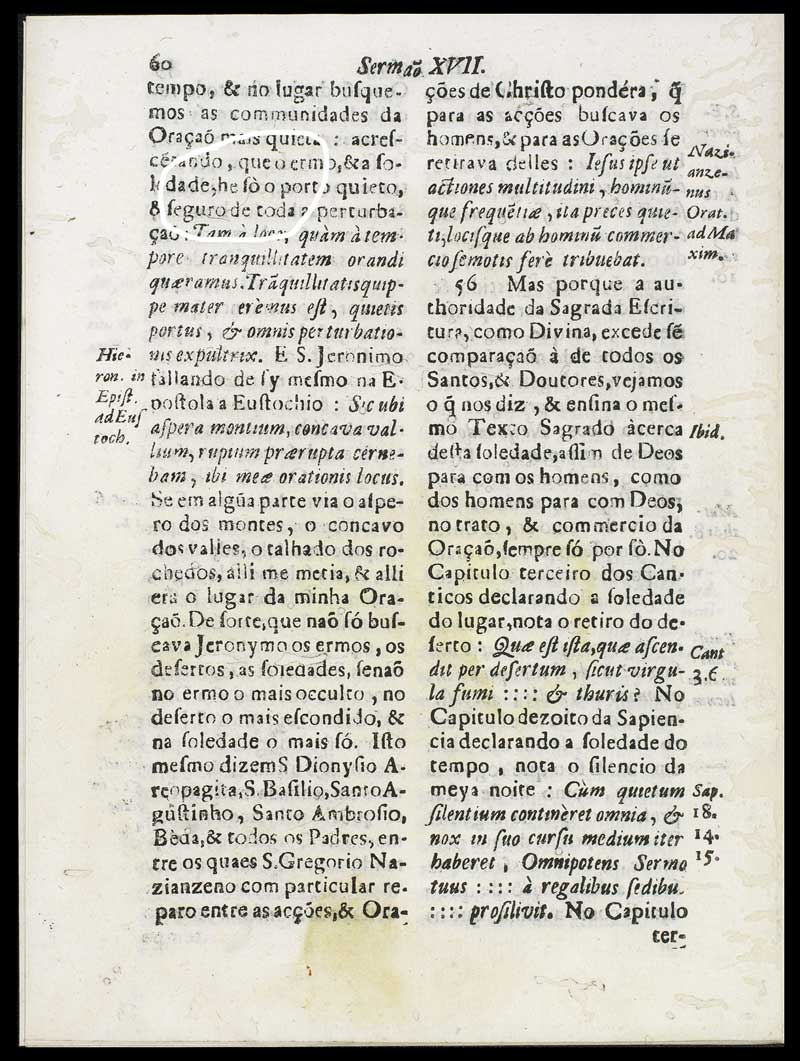 60
Sermaõ XVII.
tempo, & no lugar buſque-
mos as communidades da
Oraçaõ mais quieta : acreſ-
centando, que o ermo, & a ſo-
ledade, he ſò o porto quieto,
& ſeguro de toda a perturba-
çaõ : Tam à loco, quàm à tem-
pore tranquillitatem orandi
quæramus. Trāquillitatis quip-
pe mater erèmus eſt, quietis
portus, & omnis perturbatio-
nis expultrix. E S. Jeronimo
fallando de ſy meſmo na E-
poſtola a Euſtochio : Sicubi
aſpera montium, concava val-
lium, rupium prærupta cèrne-
bam, ibi meæ orationis locus.
Se em algũa parte via o aſpe-
ro dos montes, o concavo
dos valles, o talhado dos ro-
chedos, alli me metia, & alli
era o lugar da minha Ora-
çaõ. De ſorte, que naõ ſó buſ-
cava Jeronymo os ermos, os
deſertos, as ſoledades, ſenaõ
no ermo o mais occulto, no
deſerto o mais eſcondido, &
na ſoledade o mais ſó. Iſto
meſmo dizem S Dionyſio A-
reopagita, S. Baſilio, Santo A-
guſtinho, Santo Ambroſio,
Bèda, & todos os Padres, en-
tre os quaes S. Gregorio Na-
zianzeno com particular re-
paro entre as acções, & Ora-
Hie-
ron. in
Epiſt.
ad Euſ
toch.
ções de Chriſto pondéra, q̃
para as acções buſcava os
homens, & para as Orações ſe
retirava delles : Ieſus ipſe ut
actiones multitudini, hominũ-
que frequẽtiæ, ita preces quie-
ti, lociſque ab hominũ commer-
cio ſemotis ferè tribuebat.
56 Mas porque a au-
thoridade da Sagrada Eſcri-
tura, como Divina, excede ſẽ
comparaçaõ à de todos os
Santos, & Doutores, vejamos
o q̃ nos diz, & enſina o meſ-
mo Texto Sagrado àcerca
deſta ſoledade, aſſim de Deos
para com os homens, como
dos homens para com Deos,
no trato, & commercio da
Oraçaõ, ſempre ſó por ſò. No
Capitulo terceiro dos Can-
ticos declarando a ſoledade
do lugar, nota o retiro do de-
ſerto : Quæ eſt iſta, quæ aſcen-
dit per deſertum, ſicut virgu-
la fumi :::: & thuris? No
Capitulo dezoito da Sapien-
cia declarando a ſoledade do
tempo, nota o ſilencio da
meya noite : Cùm quietum
ſilentium contineret omnia, &
nox in ſuo curſu medium iter
haberet, Omnipotens Sermo
tuus :::: à regalibus ſedibu.
:::: proſilivit. No Capitulo
ter-
Nazi-
anze-
nus
Orat.
ad Ma
xim.
Ibid.
Cant
3.6.
Sap.
18.
14.
15.